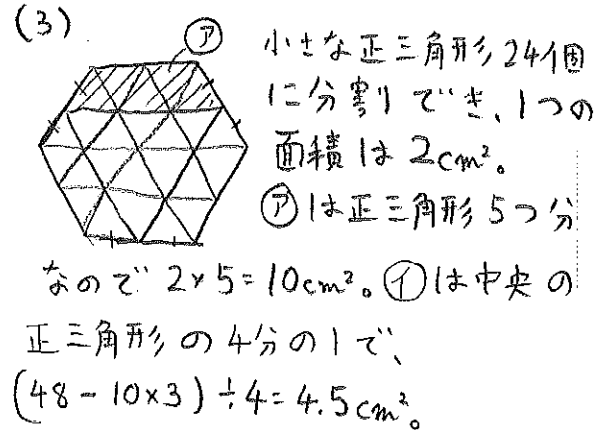 (3)
ア
小さな正三角形24個
に分割でき、1つの
面積は2cm²。
アは正三角形5つ分
なので 2×5=10cm²。イは中央の
正三角形の4分の1で、
(48-10×3)÷4=4.5cm²。